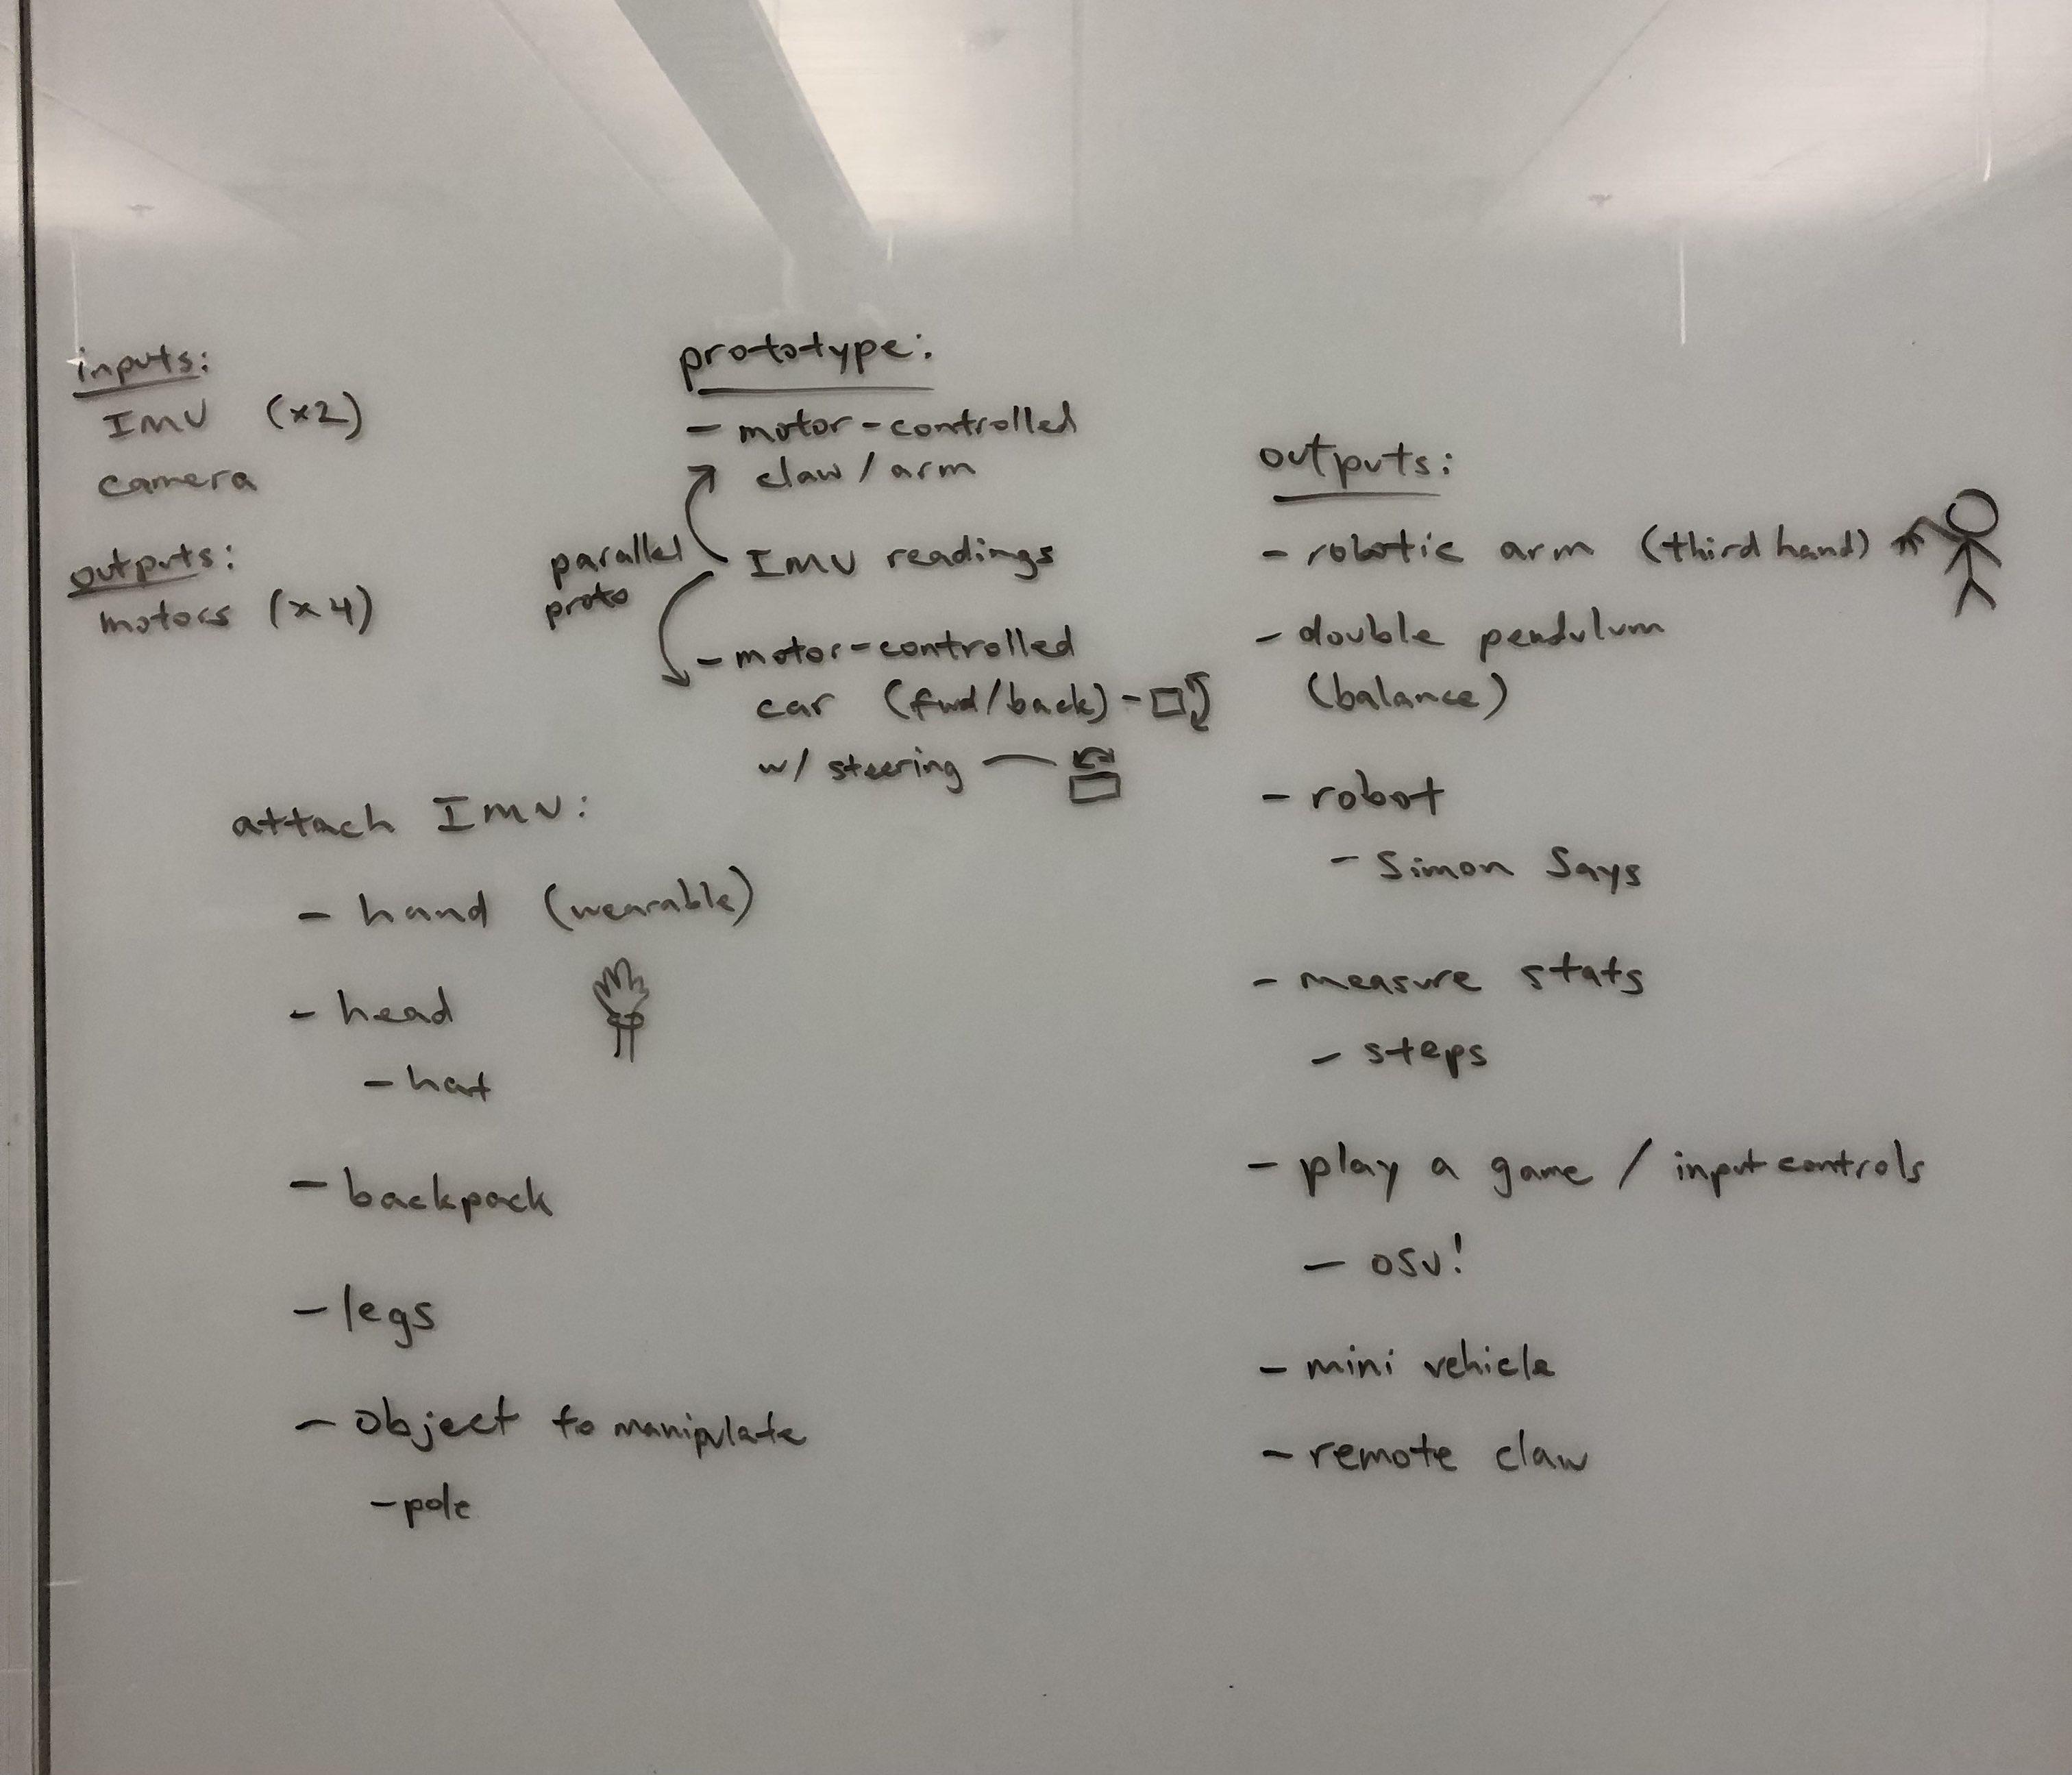 inputs:
IMU (x2)
camera
outputs:
motors (x4)
prototype:
- motor-controlled
claw / arm
parallel
proto
IMU readings
- motor-controlled
car (fwd/back) -
w/ steering —
attach IMU:
- hand (wearable)
- head
- hat
- backpack
- legs
- Object to maniplate
- pole
outputs:
- robotic arm (third hand)
- double pendulum
(balance)
- robot
- Simon Says
- measure stats
- steps
- play a game / input controls
- osu!
- mini vehicle
- remote claw